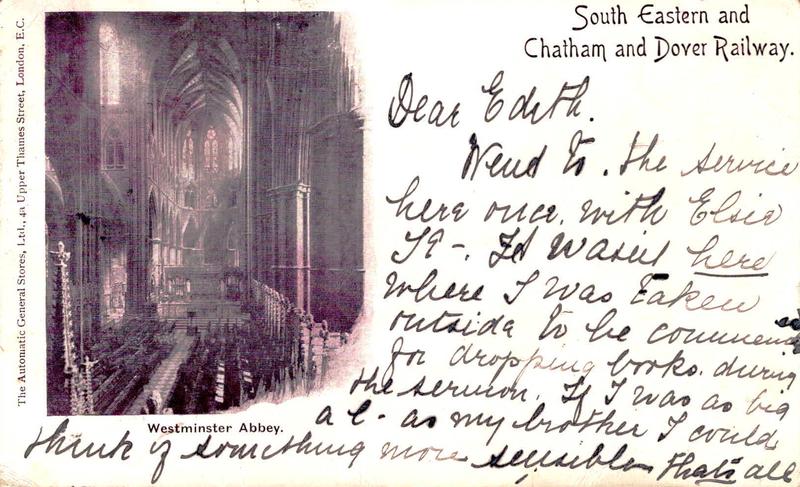 The Automatic General Stores, Ltd., 4a Upper Thames Street, London, E.C.
South Eastern and
Chatham and Dover Railway.
Westminster Abbey.
Dear Edith.
Wend to. the service
here once. with Elsie
It wasn't here
where I was taken
outside to be
for dropping books. during
the sermon. If I was as big
a as my brother I could
think of something more sensible that's all